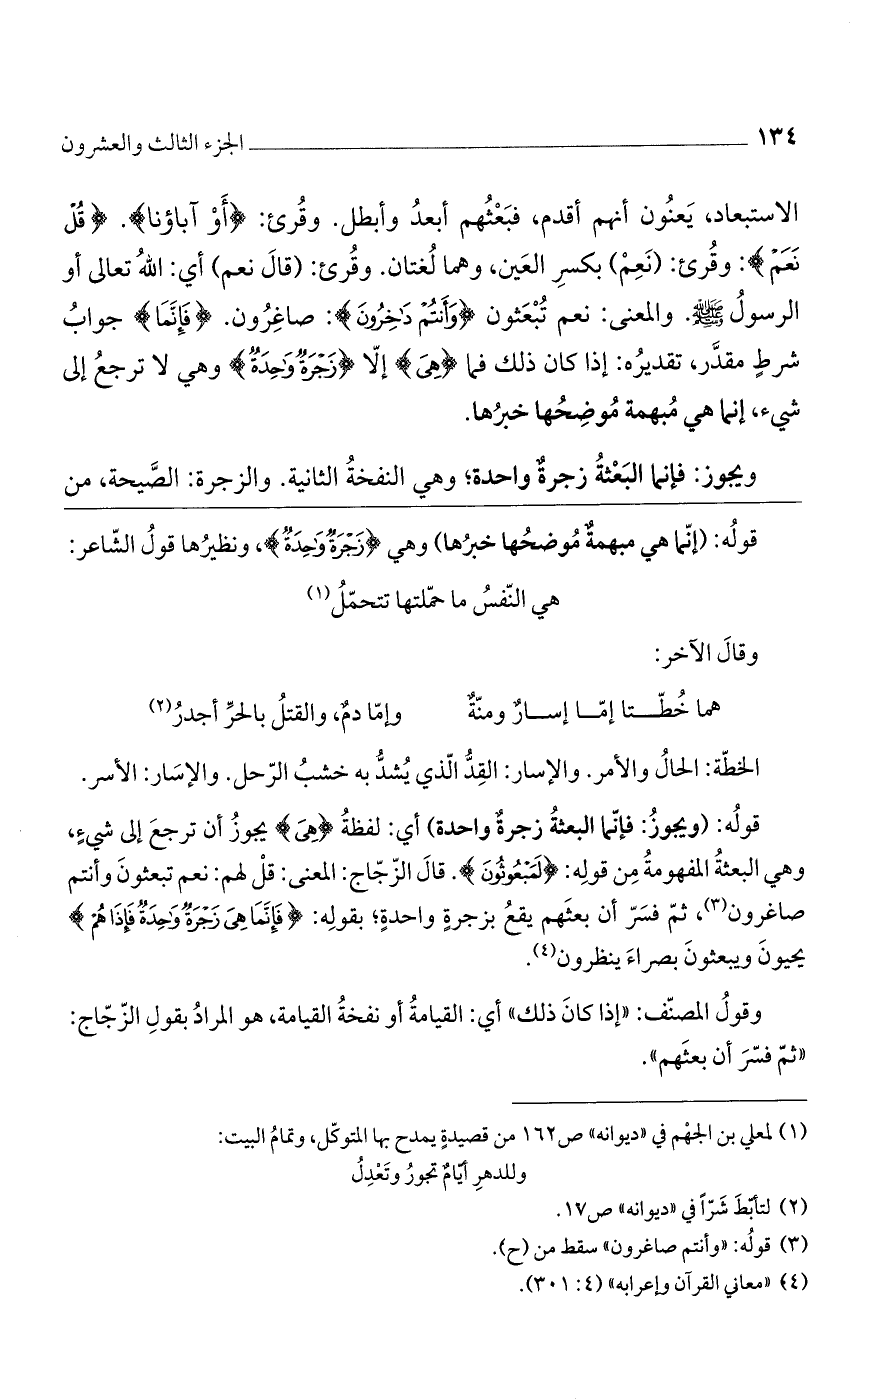 ١٣٤ الجزء الثالث والعشرون
الاستبعاد، يَعنُون أنهم أقدم، فبَعْثُهم أبعدُ وأبطل. وقُرئ: ﴿أَوْ آباؤنا﴾. ﴿قُلْ
نَعَمْ﴾: وقُرئ: (نَعِمْ) بكسرِ العَين، وهما لُغتان. وقُرئ: (قالَ نعم) أي: اللهُ تعالى أو
الرسولُ ﷺ. والمعنى: نعم تُبْعَثون ﴿وَأَنتُمْ دَٰخِرُونَ﴾: صاغِرُون. ﴿فَإِنَّمَا﴾ جوابُ
شرطٍ مقدَّر، تقديرُه: إذا كان ذلك فما ﴿هِىَ﴾ إلّا ﴿زَجْرَةٌ وَٰحِدَةٌ﴾ وهي لا ترجعُ إلى
شيء، إنما هي مُبهمة مُوضِحُها خبرُها.
ويجوز: فإنما البَعْثةُ زجرةٌ واحدة؛ وهي النفخةُ الثانية. والزجرة: الصَّيحة، من
قولُه: (إنّما هي مبهمةٌ مُوضحُها خبرُها) وهي ﴿زَجْرَةٌ وَٰحِدَةٌ﴾، ونظيرُها قولُ الشّاعر:
هي النّفسُ ما حمّلتها تتحمّلُ(١)
وقالَ الآخر:
هما خُطّـــتا إمّــا إســارٌ ومنّةٌ وإمّا دمٌ، والقتلُ بالحرِّ أجدرُ(٢)
الخطّة: الحالُ والأمر. والإسار: القِدُّ الّذي يُشدُّ به خشبُ الرّحل. والإسَار: الأسر.
قولُه: (ويجوزُ: فإنّما البعثةُ زجرةٌ واحدة) أي: لفظةُ ﴿هِىَ﴾ يجوزُ أن ترجعَ إلى شيءٍ،
وهي البعثةُ المفهومةُ مِن قولِه: ﴿لَمَبْعُوثُونَ﴾. قالَ الزّجّاج: المعنى: قلْ لهم: نعم تبعثونَ وأنتم
صاغرون(٣)، ثمّ فسَرّ أن بعثَهم يقعُ بزجرةٍ واحدةٍ؛ بقولِه: ﴿فَإِنَّمَا هِىَ زَجْرَةٌ وَٰحِدَةٌ فَإِذَا هُمْ﴾
يحيونَ ويبعثونَ بصراءَ ينظرون(٤).
وقولُ المصنّف: «إذا كانَ ذلك» أي: القيامةُ أو نفخةُ القيامة، هو المرادُ بقولِ الزّجّاج:
«ثمّ فسّرَ أن بعثَهم».
(١) لمعلي بن الجهْم في «ديوانه» ص١٦٢ من قصيدةٍ يمدح بها المتوكّل، وتمامُ البيت:
وللدهرِ أيّامٌ تجورُ وتَعْدِلُ
(٢) لتأبّطَ شَرّاً في «ديوانه» ص١٧.
(٣) قولُه: «وأنتم صاغرون» سقط من (ح).
(٤) «معاني القرآن وإعرابه» (٤: ٣٠١).